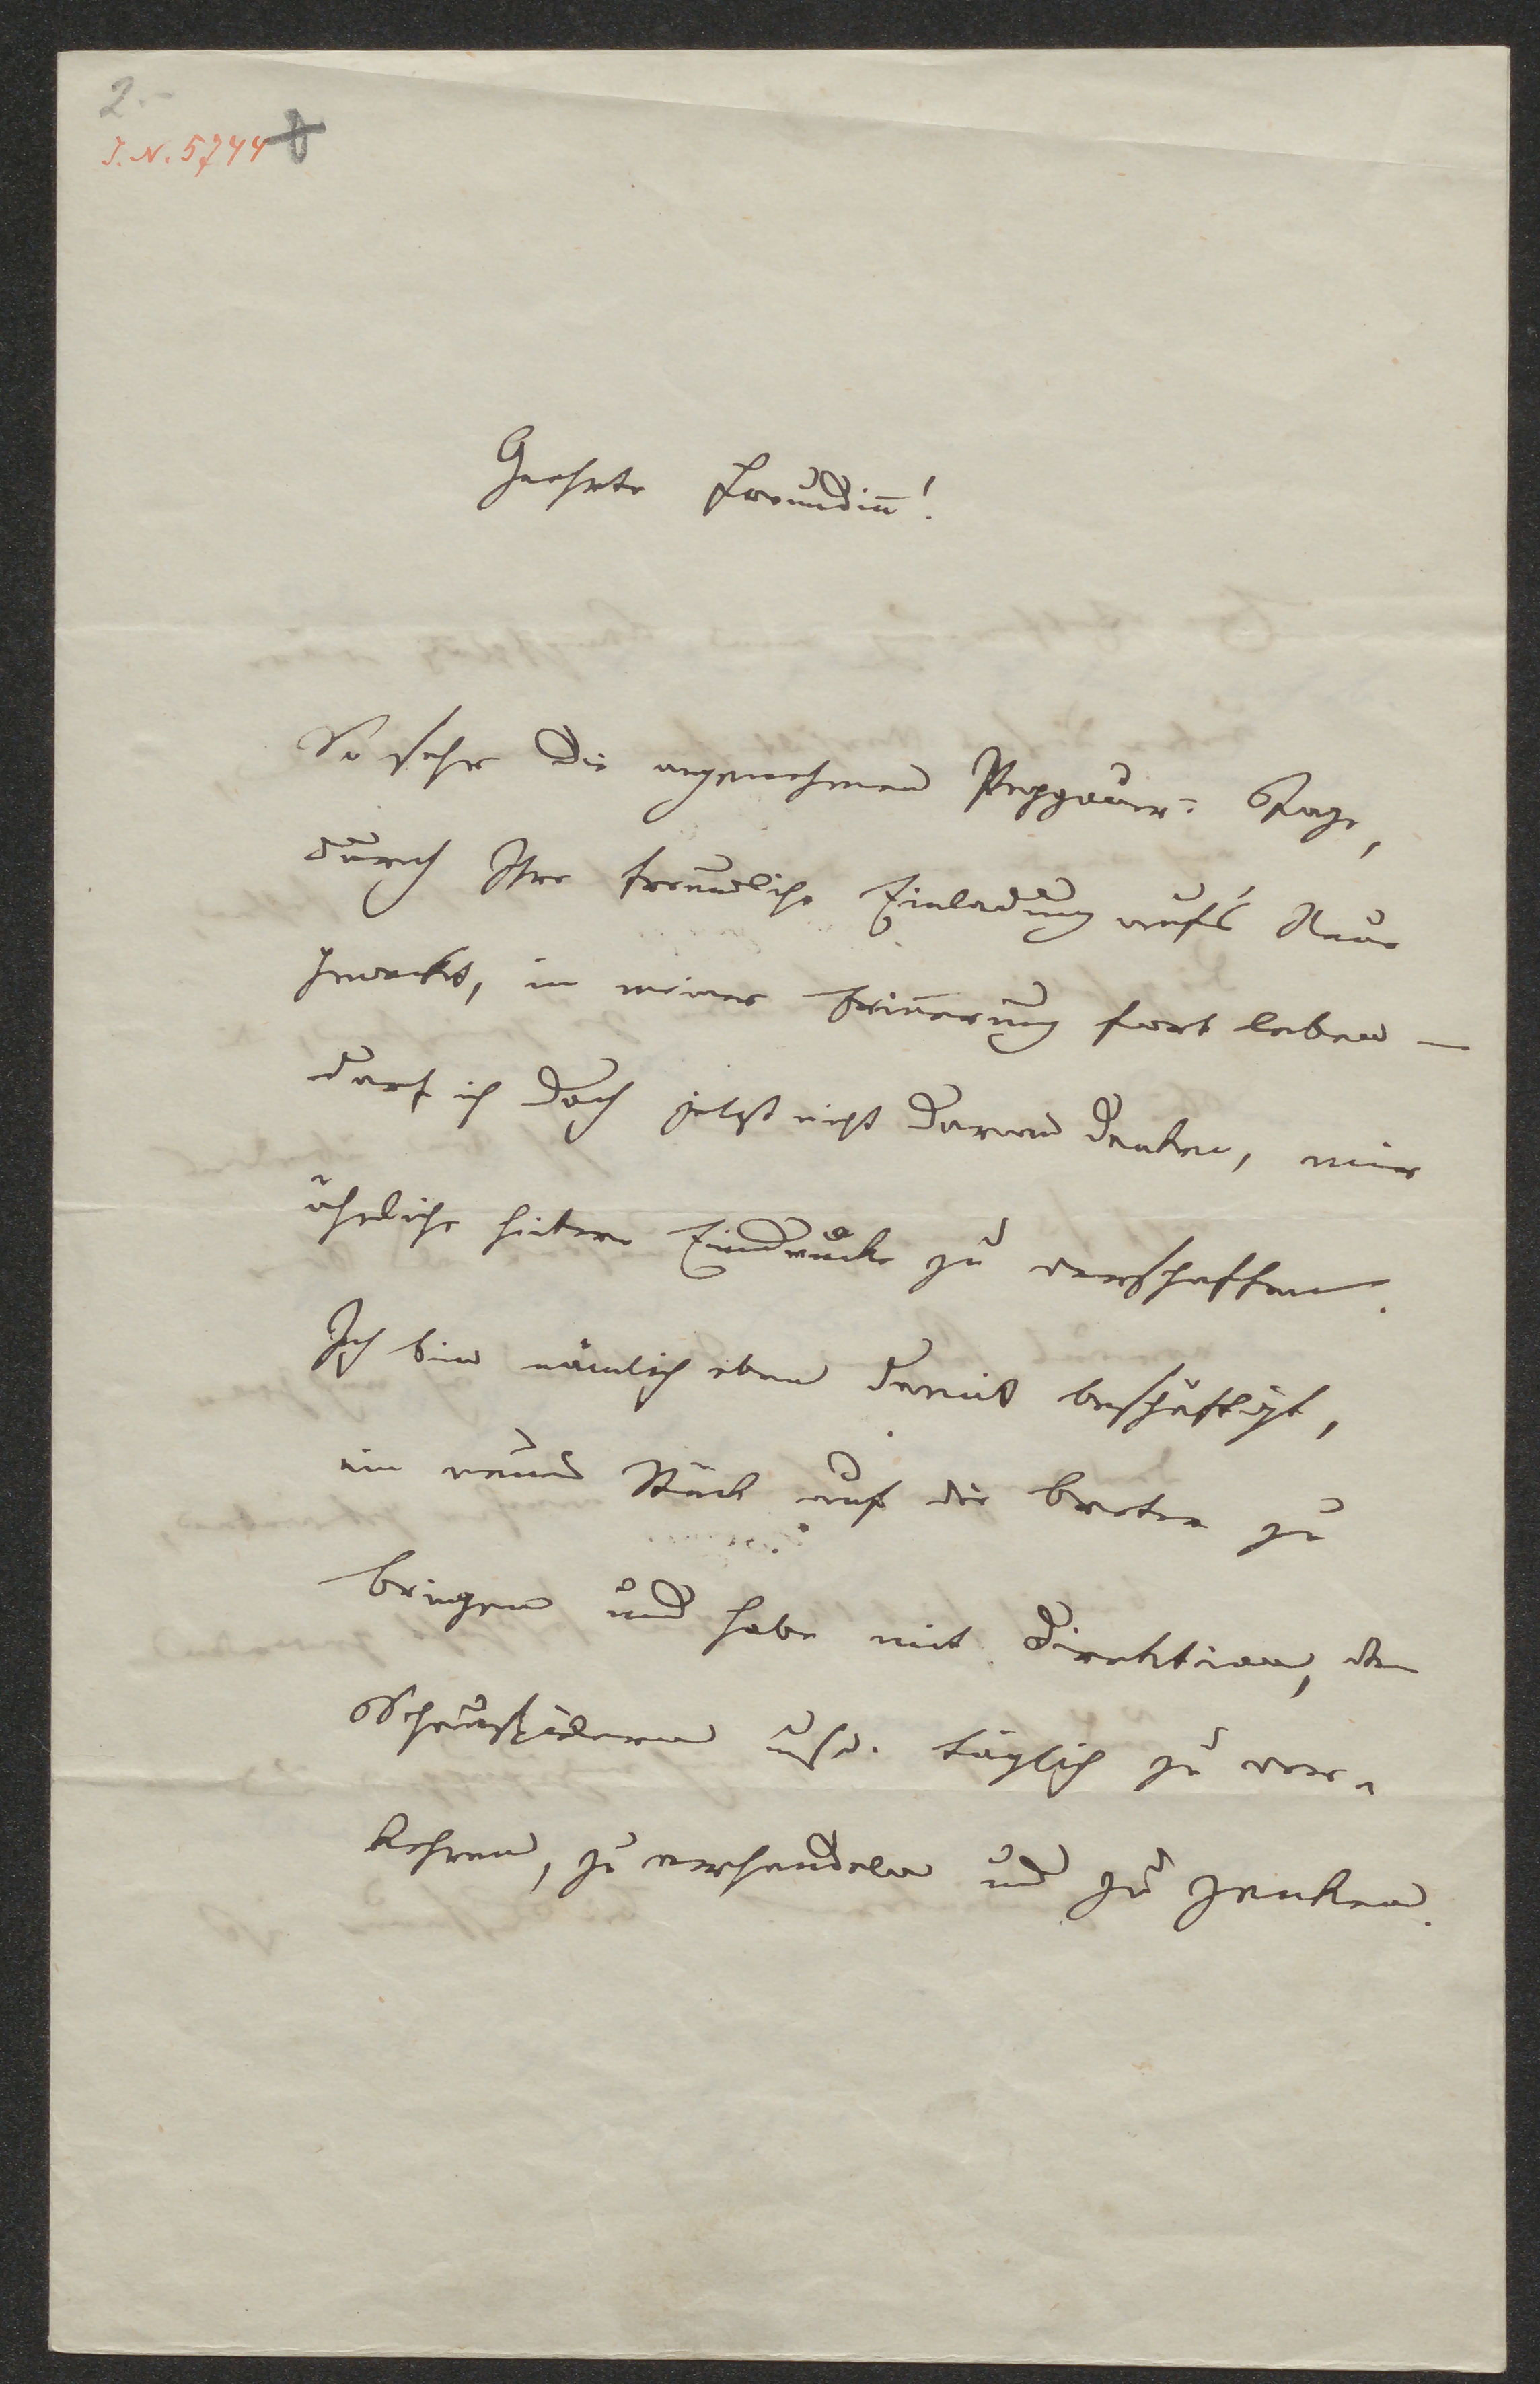 2.-
J.N. 5744
Geehrte Freundin̄!
So sehr die angenehmen Peggauer- Tage,
durch Ihre freundliche Einladung auf's Neue
geweckt, in meiner Erin̄erung fort leben —
darf ich doch jetzt nicht daran denken, mir
ähnliche heitere Eindrücke zu verschaffen.
Ich bin nämlich eben damit beschäftigt,
ein neues Stück auf die Breter zu
bringen und habe mit Direktion, den
Schauspielern usw. täglich zu ver-
kehren, zu verhandeln und zu zanken.